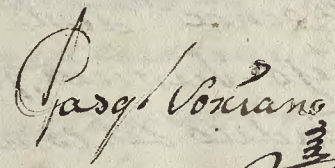 Pasql Soriano